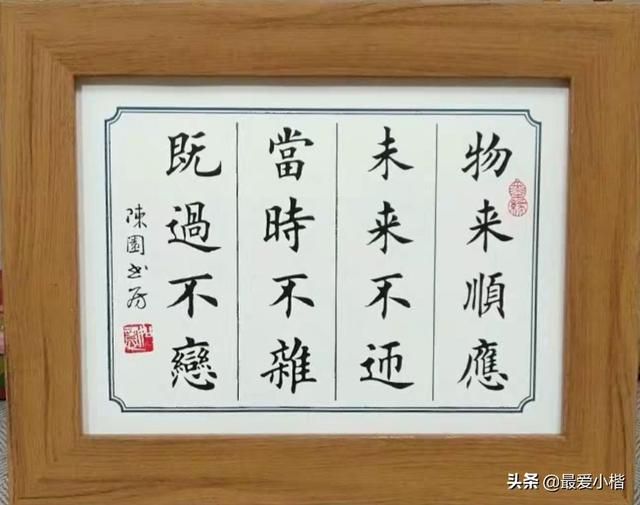 物来順應
未来不迎
當時不雜
既過不戀
陳園书房
头条 @最爱小楷